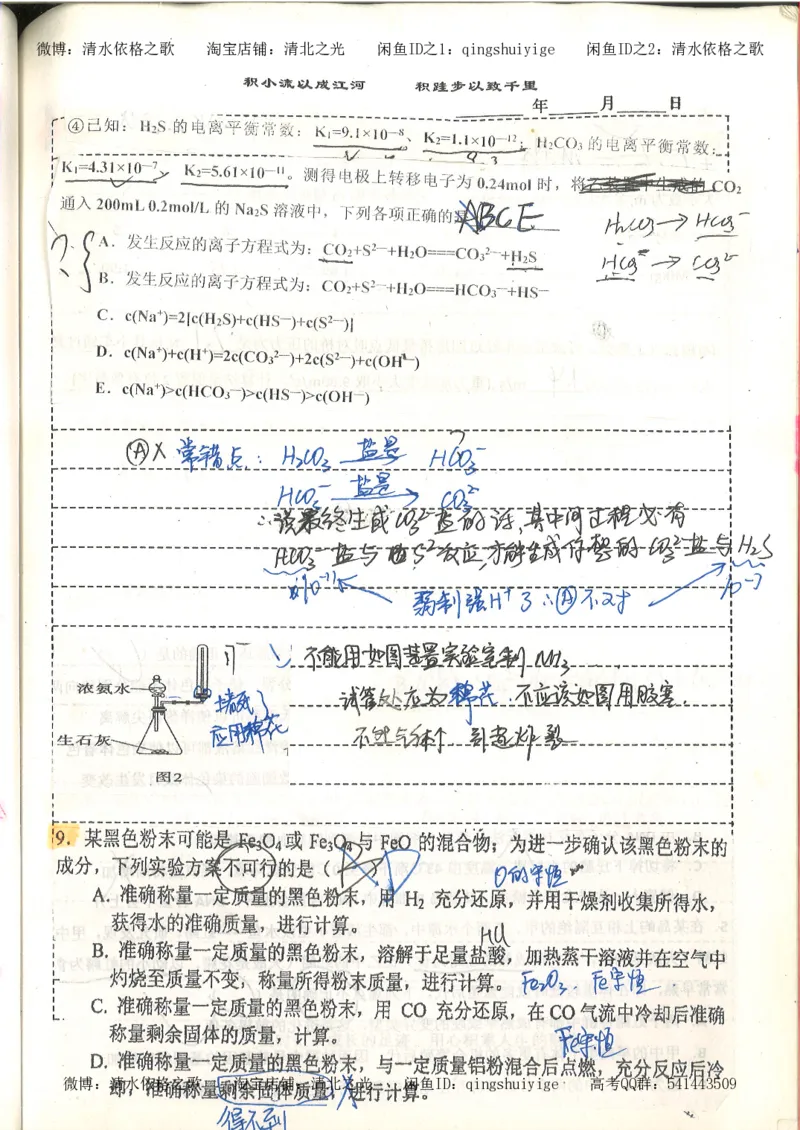 微博：清水依格之歌 淘宝店铺：清北之光 闲鱼ID之1：qingshuiyige 闲鱼ID之2：清水依格之歌
积小流以成江河 积跬步以致千里
年 月 日
④已知：H₂S 的电离平衡常数：K₁=9.1×10—⁸、K₂=1.1×10—¹²；H₂CO₃ 的电离平衡常数：
K₁=4.31×10—⁷、K₂=5.61×10—¹¹。测得电极上转移电子为 0.24mol 时，将石装置中生成的 CO₂
通入 200mL 0.2mol/L 的 Na₂S 溶液中，下列各项正确的是 ABCE
H₂CO₃→HCO₃⁻
HCO₃⁻→CO₃²⁻
A．发生反应的离子方程式为：CO₂+S²—+H₂O===CO₃²—+H₂S
B．发生反应的离子方程式为：CO₂+S²—+H₂O===HCO₃—+HS—
C．c(Na⁺)=2[c(H₂S)+c(HS—)+c(S²—)]
D．c(Na⁺)+c(H⁺)=2c(CO₃²—)+2c(S²—)+c(OH—)
E．c(Na⁺)>c(HCO₃—)>c(HS—)>c(OH—)
Ⓐ× 常错点：H₂CO₃ 盐是 HCO₃⁻
HCO₃⁻ 盐是→ CO₃²⁻
∴该最终生成CO₃²⁻盐的话，其中间过程必有
HCO₃⁻盐与S²⁻反应，才能生成你想的CO₃²⁻盐与H₂S
弱制强H⁺了∴Ⓐ不对
10⁻⁷
不能用如图装置实验室制NH₃
浓氨水
堵死了
应用棉花
试管处应为棉花．不应该如图用胶塞．
生石灰
引起炸裂
图2
9．某黑色粉末可能是 Fe₃O₄ 或 Fe₃O₄ 与 FeO 的混合物；为进一步确认该黑色粉末的
成分，下列实验方案不可行的是（ D ）
O的守恒
A. 准确称量一定质量的黑色粉末，用 H₂ 充分还原，并用干燥剂收集所得水，
获得水的准确质量，进行计算。
HCl
B. 准确称量一定质量的黑色粉末，溶解于足量盐酸，加热蒸干溶液并在空气中
灼烧至质量不变，称量所得粉末质量，进行计算。 Fe₂O₃．Fe守恒
C. 准确称量一定质量的黑色粉末，用 CO 充分还原，在CO 气流中冷却后准确
称量剩余固体的质量，计算。 Fe守恒
D. 准确称量一定质量的黑色粉末，与一定质量铝粉混合后点燃，充分反应后冷
却，准确称量剩余固体质量，进行计算。
得不到
微博：清水依格之歌 淘宝店铺：清北之光 闲鱼ID：qingshuiyige 高考QQ群：541443509